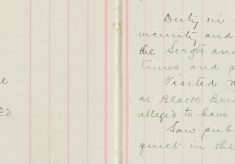 e
ed.
Duty in
vicinity and
the Sergts and
times and p
Visited
at Black Bre
alleged to have
Saw pub
quiet in the